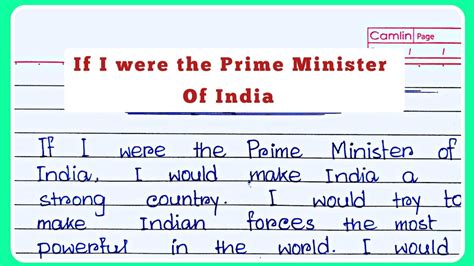 Camlin Page
If I were the Prime Minister
Of India
If I were the Prime Minister of
India, I would make India a
strong country. I would try to
make Indian forces the most
powerful in the world. I would